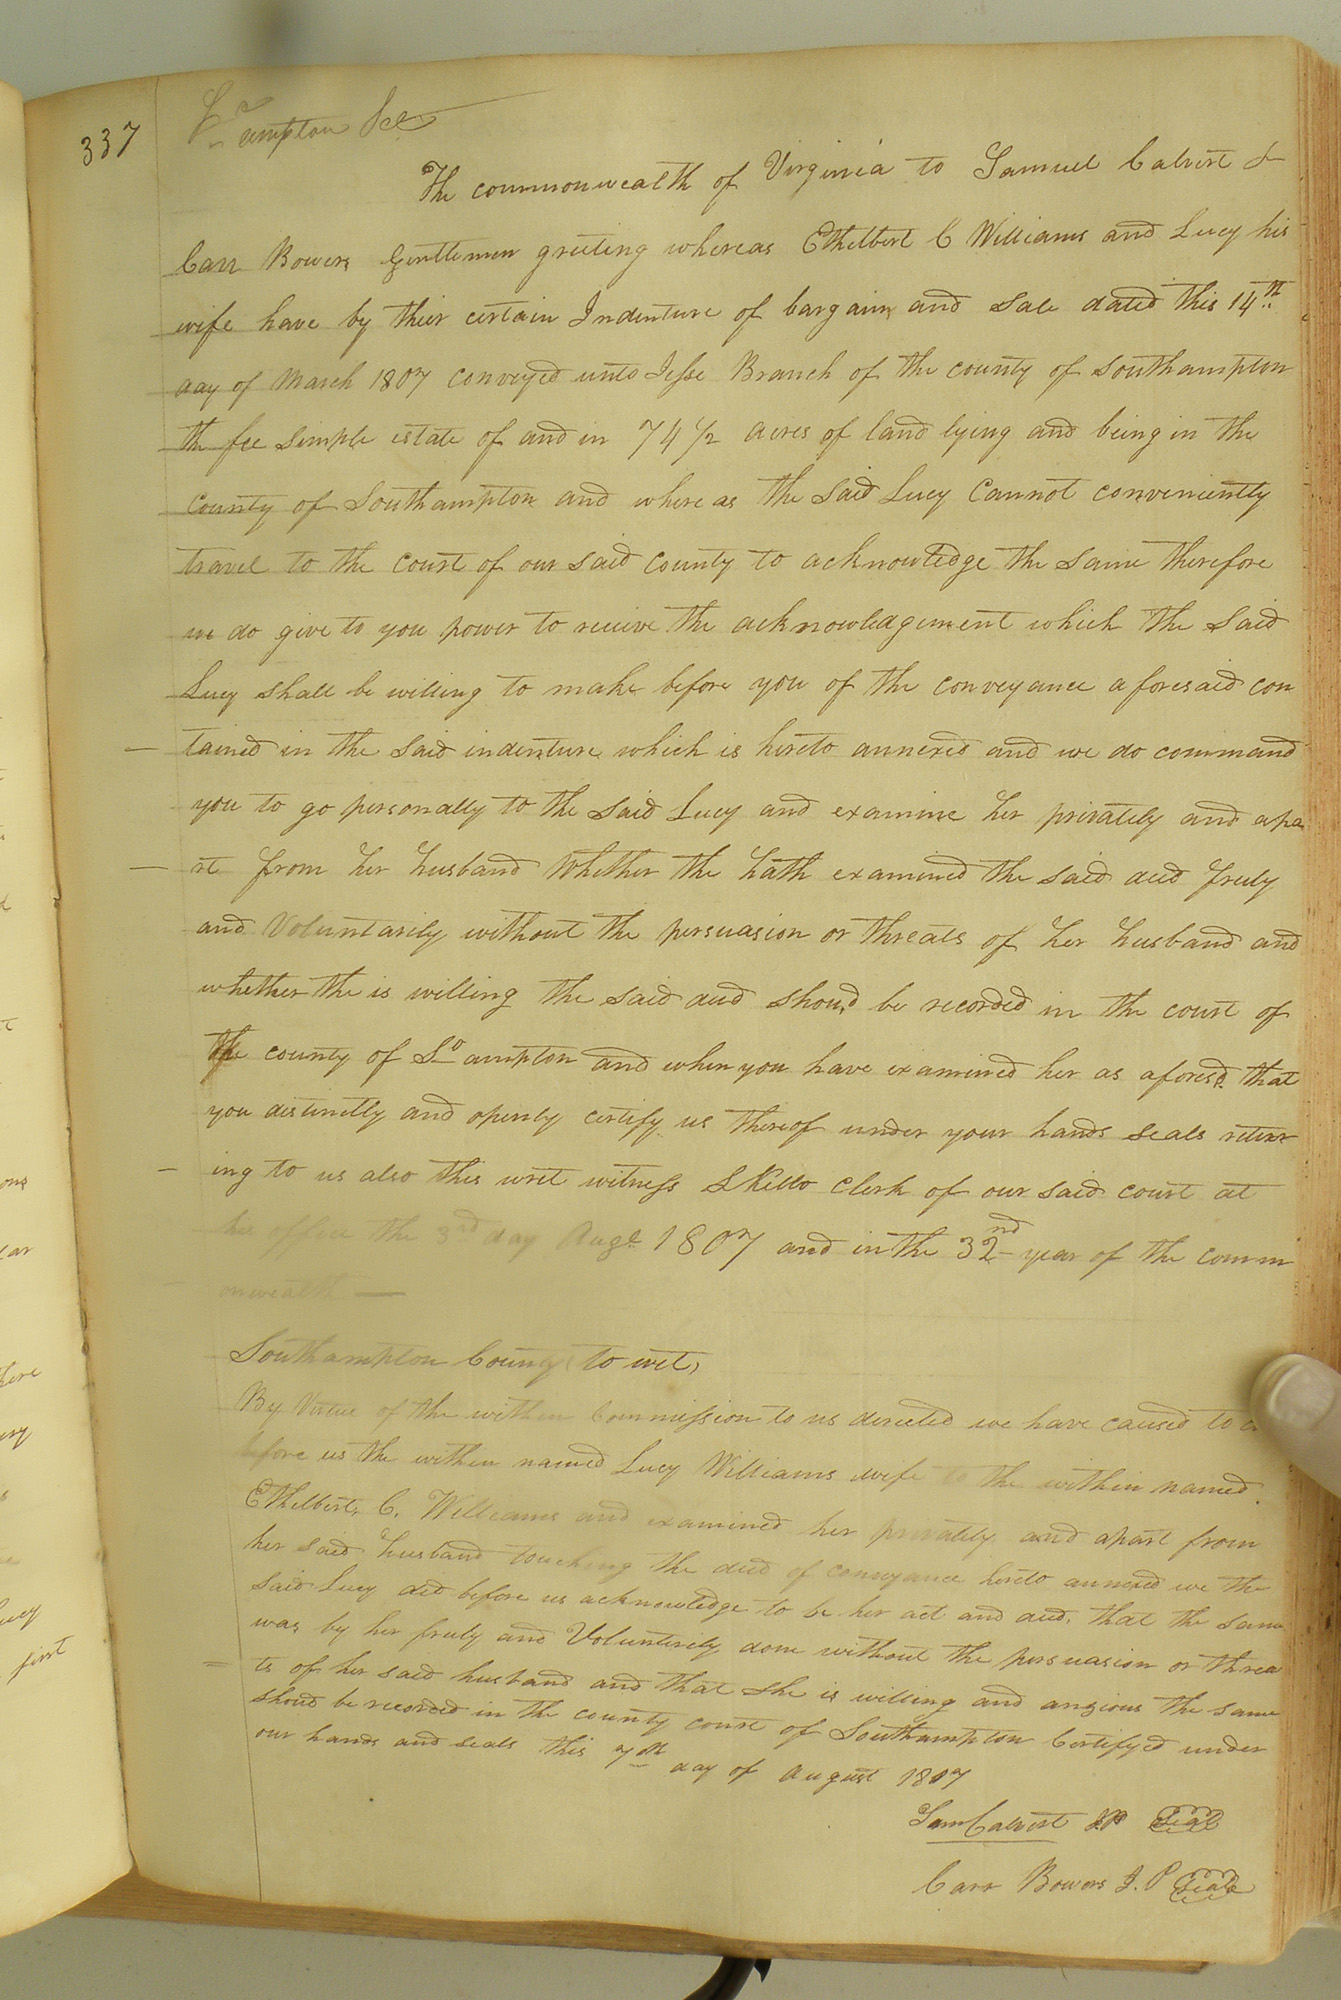 337
So ampton Sct
The commonwealth of Virginia to Samuel Calvert &
Carr Bowers Gentlemen greeting whereas Ethelbert C Williams and Lucy his
wife have by their certain Indenture of bargain and sale dated this 14th
day of March 1807 conveyed unto Jesse Branch of the county of Southampton
th fee simple estate of and in 74 1/2 acres of land lying and being in the
county of Southampton and where as the said Lucy Cannot conveniently
travel to the court of our said county to acknowledge the same therefore
we do give to you power to receive the acknowledgement which the said
Lucy shall be willing to make before you of the conveyance aforesaid con
tained in the said indenture which is hereto annexed and we do command
you to go personally to the said Lucy and examine her privately and apa
rt from her husband whether the hath examined the said deed freely
and Voluntarily without the persuasion or threats of her husband and
whether the is willing the said deed shoud be recorded in the court of
the county of So ampton and when you have examined her as aforesd. that
you distinctly and openly certify us thereof under your hands seals return
ing to us also this writ witness S Kello clerk of our said court at
his office the 3rd day Augt 1807 and in the 32nd year of the comm
onwealth —
Southampton County to wit,
By Virtue of the within Commission to us directed we have caused to
before us the within named Lucy Williams wife to the within named
Ethelbert, C. Williams and examined her privately and apart from
her said husband touching the deed of conveyance hereto annexed we the
said Lucy did before us acknowledge to be her act and deed, that the same
was by her freely and Voluntirily done without the persuasion or threa
ts of her said husband and that she is willing and anxious the same
shoud be recorded in the county court of Southampton Certifyed under
our hands and seals this 7th day of August 1807
Sam Calvert J.P Seal
Carr Bowers J. P Seal